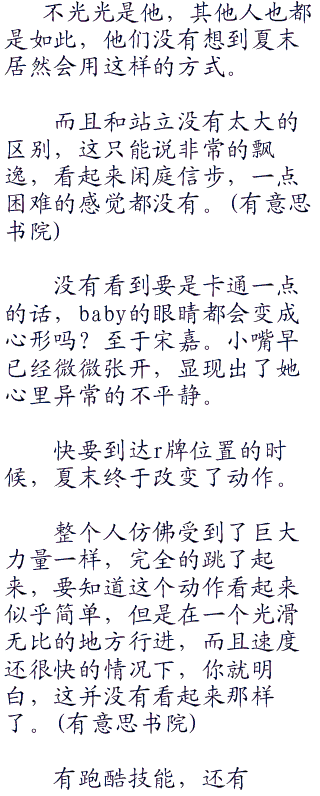 不光光是他，其他人也都
是如此，他们没有想到夏末
居然会用这样的方式。
而且和站立没有太大的
区别，这只能说非常的飘
逸，看起来闲庭信步，一点
困难的感觉都没有。(有意思
书院)
没有看到要是卡通一点
的话，baby的眼睛都会变成
心形吗？至于宋嘉。小嘴早
已经微微张开，显现出了她
心里异常的不平静。
快要到达r牌位置的时
候，夏末终于改变了动作。
整个人仿佛受到了巨大
力量一样，完全的跳了起
来，要知道这个动作看起来
似乎简单，但是在一个光滑
无比的地方行进，而且速度
还很快的情况下，你就明
白，这并没有看起来那样
了。(有意思书院)
有跑酷技能，还有